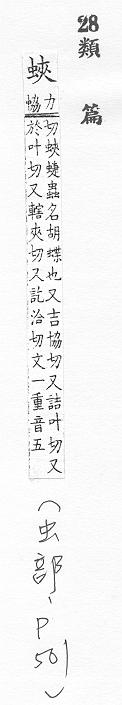 28類篇
蛺
力切蛺蜨蟲名胡蝶也又吉協切又詰叶切又
協於叶切又轄夾切又訖洽切文一重音五
(虫部、P501)